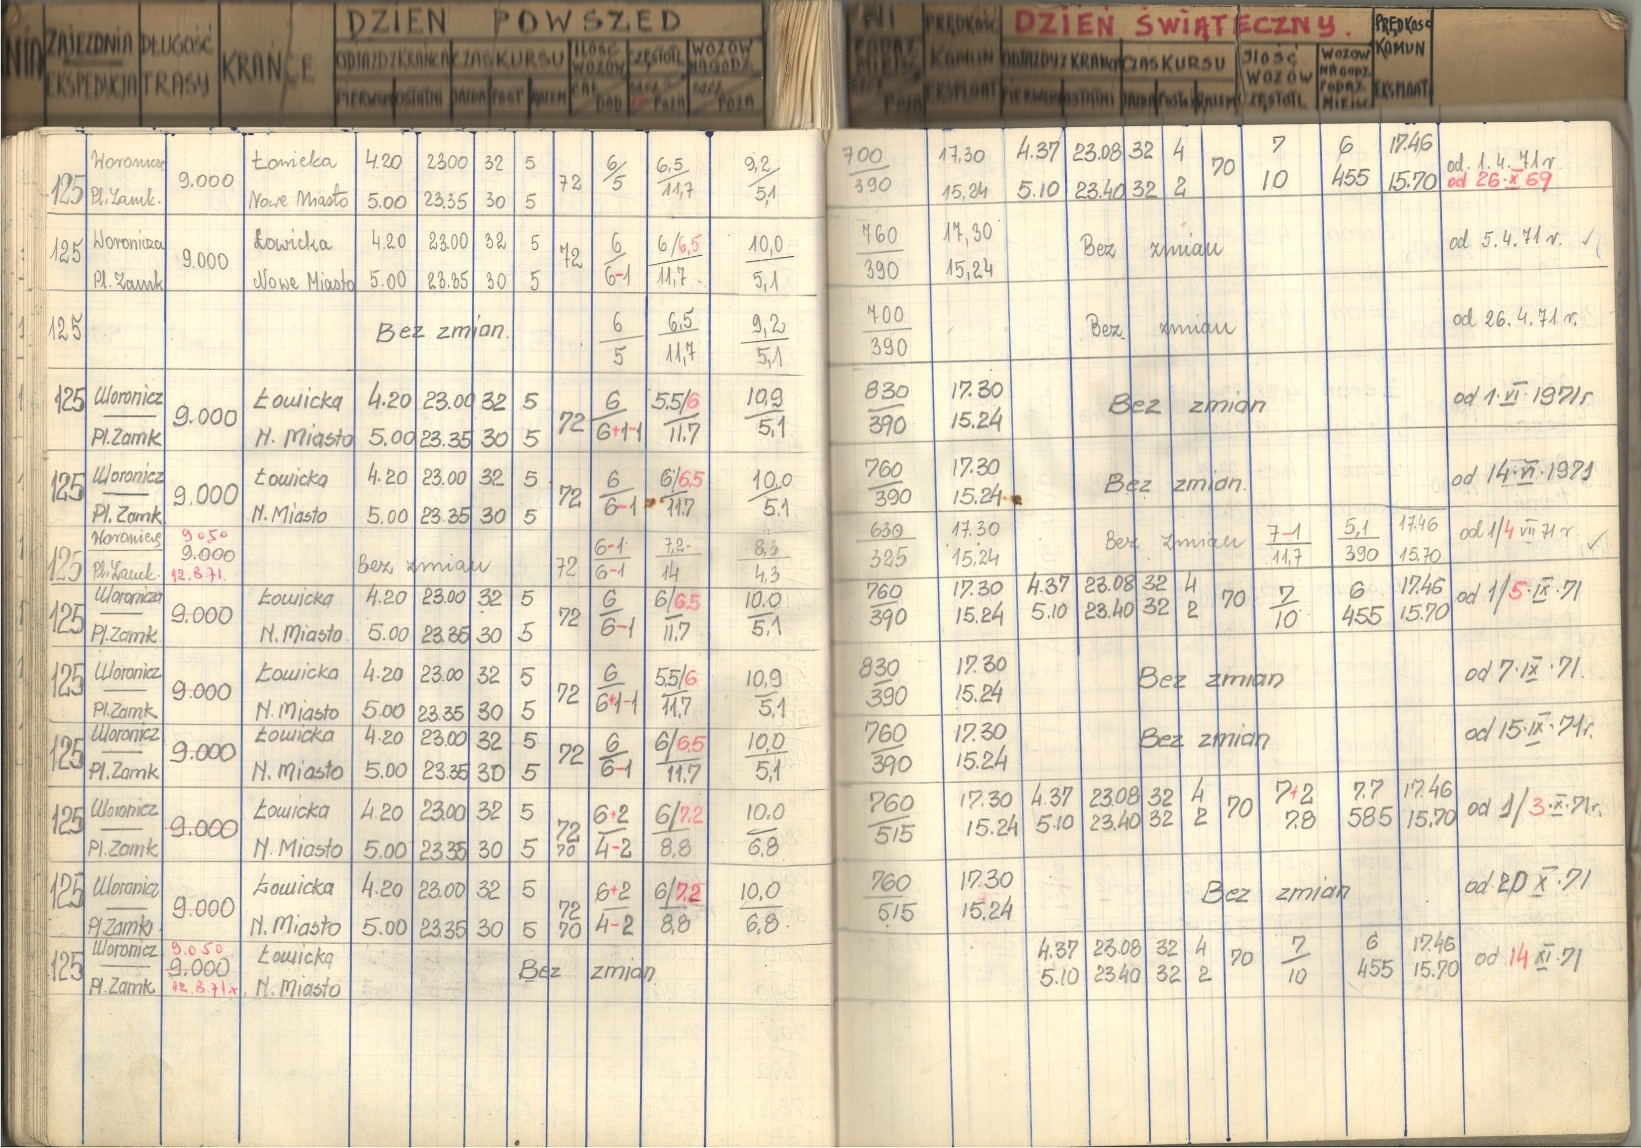 DZIEŃ POWSZED
NI PRĘDKOŚĆ DZIEŃ ŚWIĄTECZNY. PRĘDKOŚĆ
NIA ZAJEZDNIA DŁUGOŚĆ KRAŃCE ODJAZD Z KRAŃCA CZAS KURSU ILOŚĆ WOZÓW CZĘSTOTL WOZÓW NA GODZ. KOMUN ODJAZDY Z KRAŃCA CZAS KURSU ILOŚĆ WOZÓW WOZÓW NA GODZ KOMUN
EKSPEDYCJA TRASY PIERWSZY OSTATNI JAZDA POST RAZEM DOD POZA SZCZ. POZA POZA EKSPLOAT PIERWSZY OSTATNI JAZDA POSTÓJ RAZEM CZĘSTOTL PODAŻ MIEJSC EKSPLOAT
125 Woronicza 9.000 Łowicka 4.20 2300 32 5 72 6/5 6,5 9,2 700 17,30 4.37 23.08 32 4 70 7 6 17.46 od. 1.4.71 r
Pl. Zamk. Nowe Miasto 5.00 23.35 30 5 11,7 5,1 390 15,24 5.10 23.40 32 2 10 455 15.70 od 26.X 69
125 Woronicza 9.000 Łowicka 4.20 23.00 32 5 72 6 6/6,5 10,0 760 17,30 Bez zmian od 5.4.71 r.
Pl. Zamk Nowe Miasto 5.00 23.35 30 5 6-1 11,7 5,1 390 15,24
125 Bez zmian. 6 6,5 9,2 700 Bez zmian od 26.4.71 r.
5 11,7 5,1 390
125 Woronicz 9.000 Łowicka 4.20 23.00 32 5 72 6 5.5/6 10,9 830 17.30 Bez zmian od 1.VI.1971r.
Pl. Zamk N. Miasto 5.00 23.35 30 5 6+1-1 11.7 5,1 390 15.24
125 Woronicz 9.000 Łowicka 4.20 23.00 32 5 72 6 6/6.5 10.0 760 17.30 Bez zmian. od 14.VI.1971
Pl. Zamk N. Miasto 5.00 23.35 30 5 6-1 11.7 5.1 390 15.24
125 Woronicz 9050 9.000 Bez zmian 72 6-1 7,2- 8,3 630 17.30 Bez zmian 7-1 5,1 17.46 od 1/4 VII 71 r
Pl. Zamk. 12.8.71. 6-1 14 4,3 325 15,24 11,7 390 15.70
125 Woronicza 9.000 Łowicka 4.20 23.00 32 5 72 6 6/6.5 10.0 760 17.30 4.37 23.08 32 4 70 7 6 17.46 od 1/5.IX.71
Pl. Zamk N. Miasto 5.00 23.35 30 5 6-1 11.7 5,1 390 15.24 5.10 23.40 32 2 10 455 15.70
125 Woronicz 9.000 Łowicka 4.20 23.00 32 5 72 6 5.5/6 10,9 830 17.30 Bez zmian od 7.IX.71.
Pl. Zamk N. Miasto 5.00 23.35 30 5 6+1-1 11,7 5,1 390 15.24
125 Woronicz 9.000 Łowicka 4.20 23.00 32 5 72 6 6/6,5 10,0 760 17.30 Bez zmian od 15.IX.71r.
Pl. Zamk N. Miasto 5.00 23.35 30 5 6-1 11.7 5,1 390 15.24
125 Woronicz 9.000 Łowicka 4.20 23.00 32 5 72 6+2 6/7.2 10.0 760 17.30 4.37 23.08 32 4 70 7+2 7.7 17.46 od 1/3.X.71r.
Pl. Zamk N. Miasto 5.00 23.35 30 5 70 4-2 8,8 6,8 515 15.24 5.10 23.40 32 2 7.8 585 15,70
125 Woronicz 9.000 Łowicka 4.20 23.00 32 5 72 6+2 6/7.2 10,0 760 17.30 Bez zmian od 20 X.71
Pl. Zamk N. Miasto 5.00 23.35 30 5 70 4-2 8,8 6,8 515 15.24
125 Woronicz 9.050 9.000 Łowicka Bez zmian 4.37 23.08 32 4 70 7 6 17.46 od 14 XI.71
Pl. Zamk 12.8.71r. N. Miasto 5.10 23.40 32 2 10 455 15.70